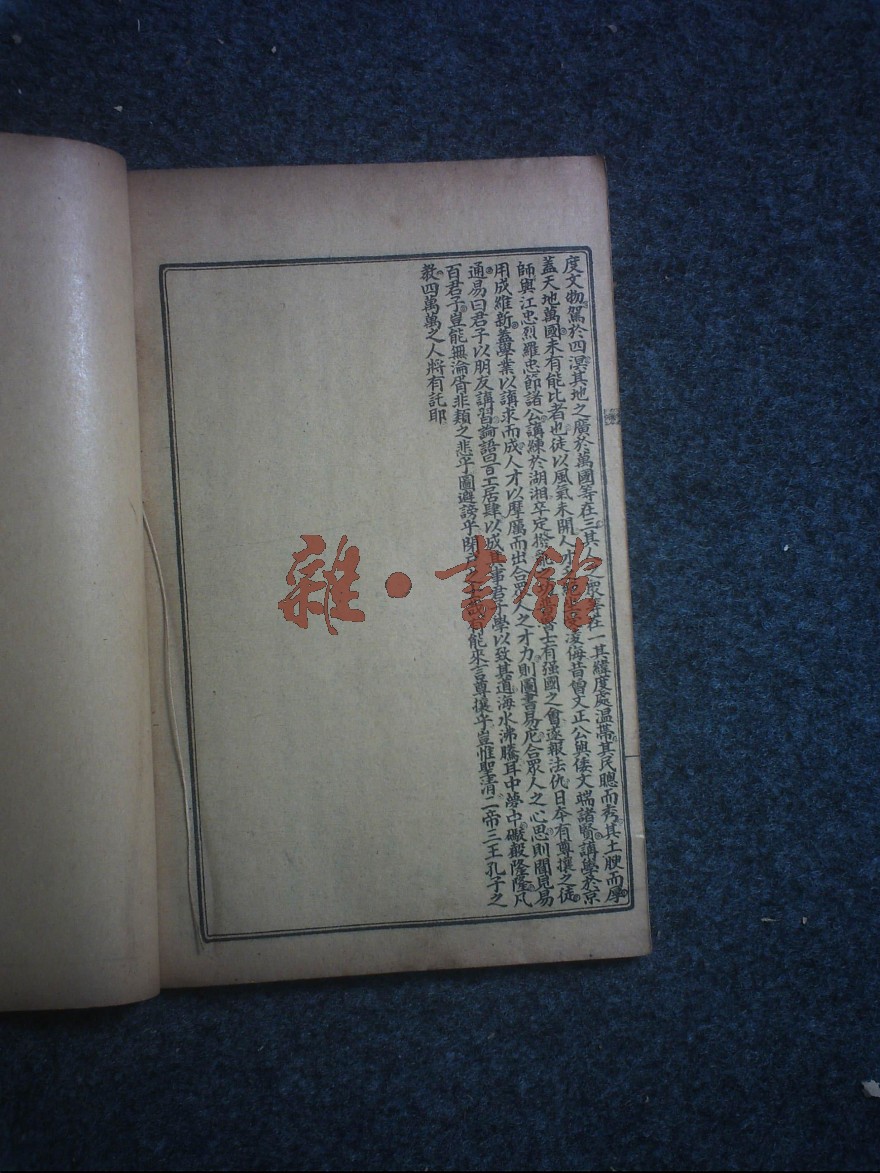 度文物駕於四溟其地之廣於萬國等在三其人之眾等在一其緯度處温帶其民聰而秀其土腴而厚
蓋天地萬國未有能比者也徒以風氣未開人才凌侮昔曾文正公與倭文端諸賢講學於京
師與江忠烈羅忠節諸公講練於湖湘卒定撥士有强國之會遂報法仇日本有尊攘之徒
用成維新蓋學業以講求而成人才以摩厲而出合眾人之才力則圖書易庀合眾人之心思則聞見易
通易曰君子以朋友講習論語曰百工居肆以成其事君子學以致其道海水沸騰耳中夢中礮聲隆隆凡
百君子豈能無淪胥非類之悲乎圖避謗乎閉能來言尊攘乎豈惟聖清二帝三王孔子之
教四萬萬之人將有託耶
雜·書館